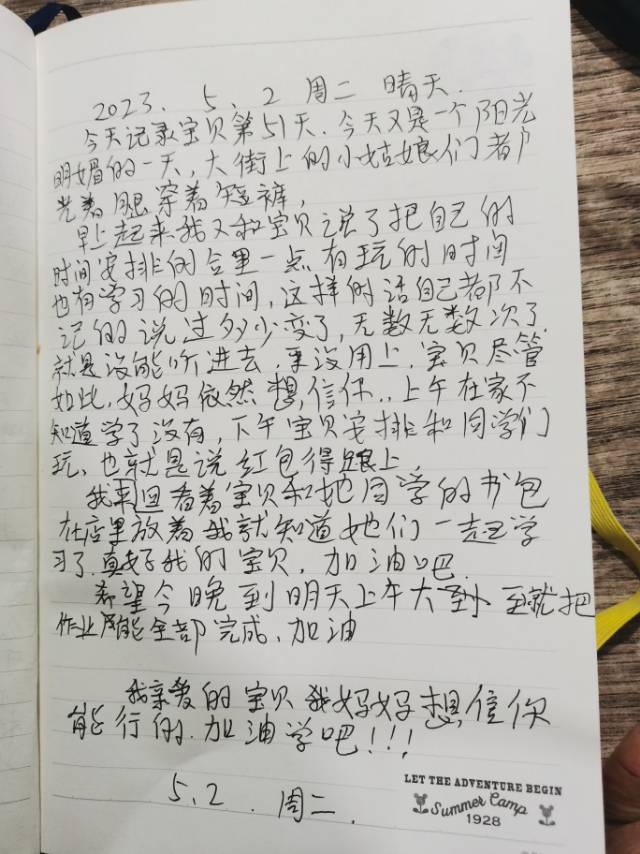 2023. 5、2 周二 晴天.
今天记录宝贝第51天. 今天又是一个阳光
明媚的一天, 大街上的小姑娘们都
光着腿穿着短裤,
早上起来我又和宝贝说了把自己的
时间安排的合里一点 有玩的时间
也有学习的时间, 这样的话自己都不
记的说过多少变了, 无数无数次了.
就是没能听进去, 来没用上, 宝贝尽管
如此, 妈妈依然想信你.. 上午在家不
知道学了没有, 下午宝贝安排和同学们
玩、也就是说红包得跟上
我来回看着宝贝和她同学的书包
在店里放着我就知道她们一起学
习了. 真好我的宝贝, 加油吧.
希望今晚到明天上午大到 就把
作业 能全部完成、加油
我亲爱的宝贝 我妈妈想信你
能行的. 加油学吧!!!
5、2 . 周二.
LET THE ADVENTURE BEGIN
Summer Camp
1928